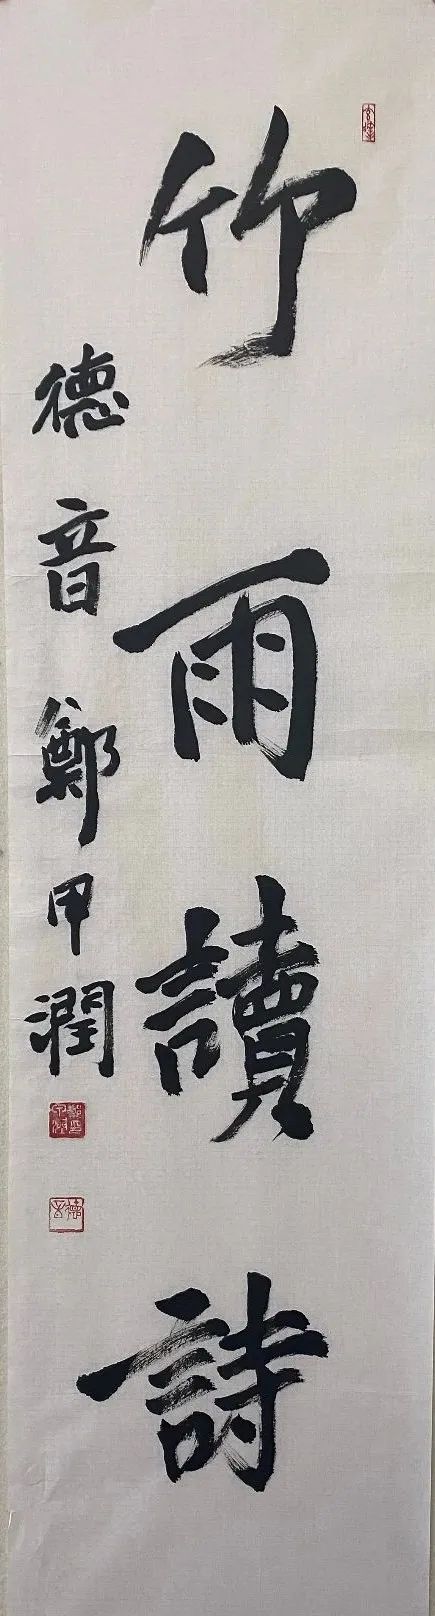 竹雨讀詩
德音鄭甲潤